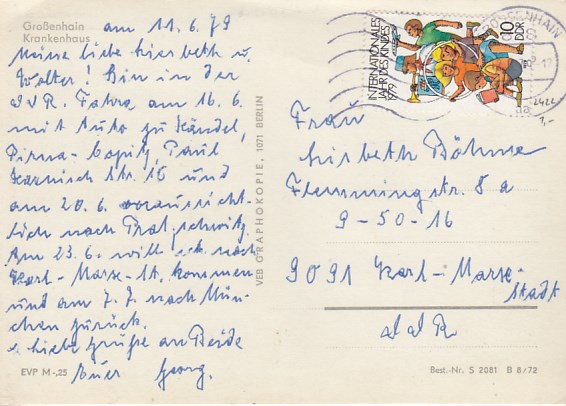 Großenhain
Krankenhaus
am 11.6.79
Meine liebe Lisbeth u.
Walter! Bin in der
DDR. Fahre am 16.6.
mit Auto zu Händel,
Pirna-Copitz, Paul
Str. 16 und
am 20.6. voraussicht-
lich nach Pratschwitz.
Am 23.6. will ich nach
Karl-Marx-St. kommen
und am 7.7. nach Mün-
chen zurück.
Liebe Grüße an Beide
Euer Georg.
EVP M -,25
VEB GRAPHOKOPIE, 1071 BERLIN
INTERNATIONALES
JAHR DES KINDES
1979
10
DDR
2422
1,-
Frau
Lisbeth Böhme
Flemmingstr. 8a
9-50-16
9091 Karl-Marx-
Stadt
DDR
Best.-Nr. S 2081 B 8/72